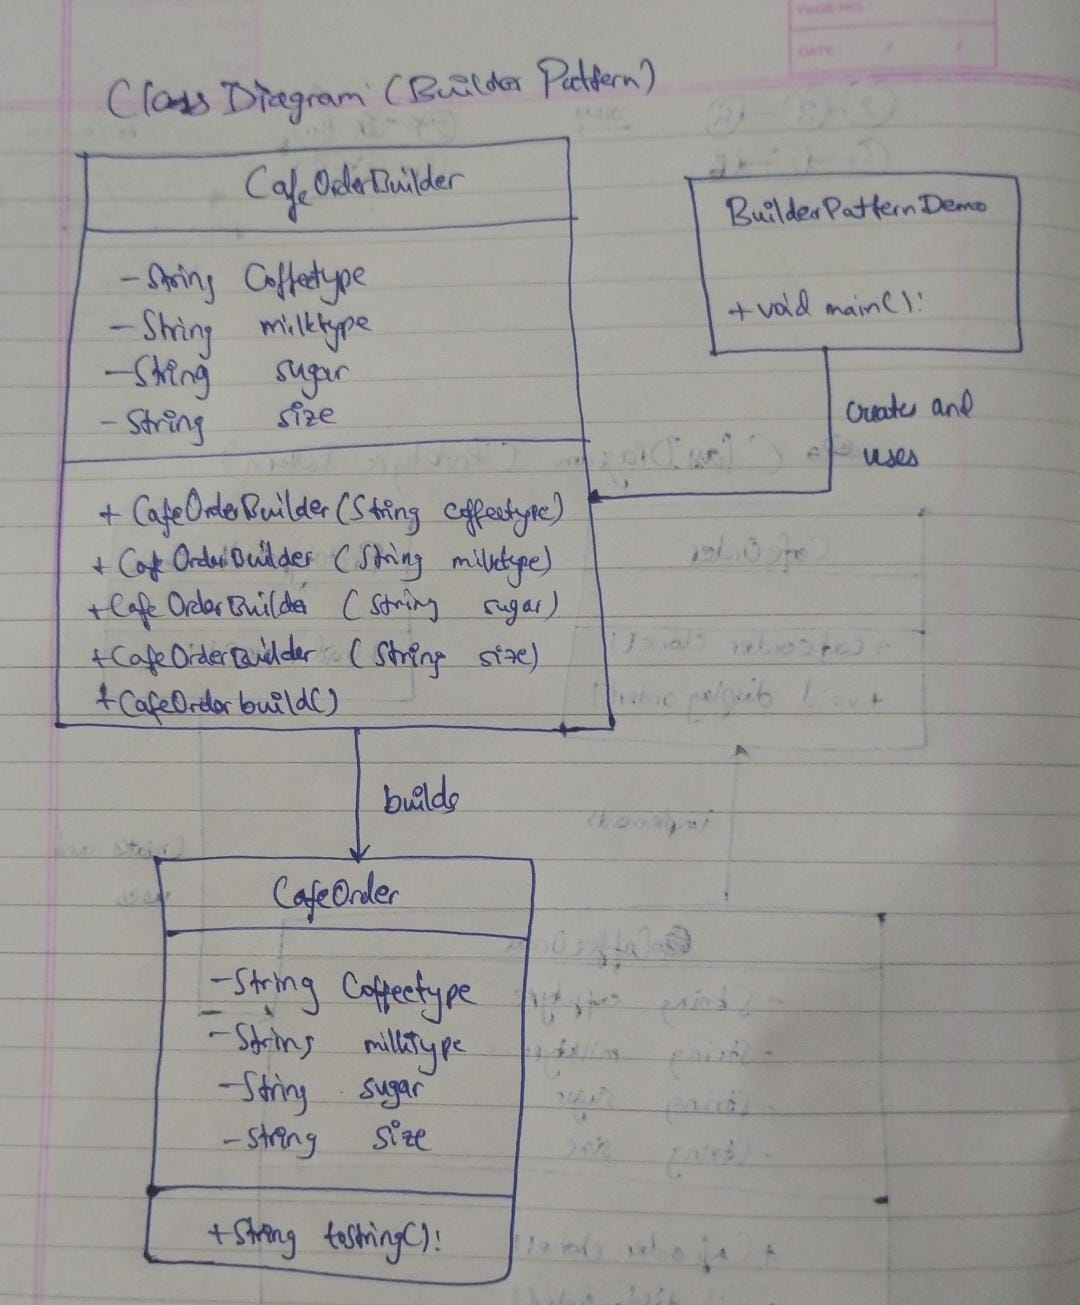 PAGE NO.
DATE
Class Diagram (Builder Pattern)
CafeOrderBuilder
- String Coffeetype
- String milktype
- String sugar
- String size
+ CafeOrderBuilder (String coffeetype)
+ CafeOrderBuilder (String milktype)
+ CafeOrderBuilder (String sugar)
+ CafeOrderBuilder (String size)
+ CafeOrder build()
BuilderPatternDemo
+ void main():
creates and
uses
builds
CafeOrder
- String Coffeetype
- String milktype
- String sugar
- String size
+ String tostring():